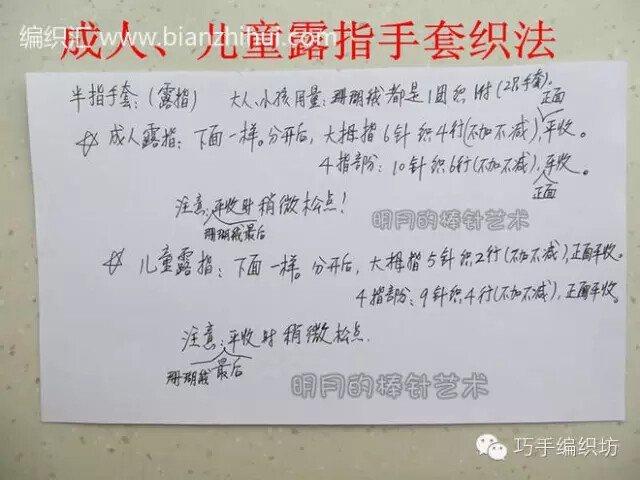 编织汇 www.bianzhihui.com
成人、儿童露指手套织法
半指手套:(露指) 大人、小孩用量:珊瑚绒都是1团织1付(2只手套)。
正面
☆ 成人露指:下面一样。分开后,大拇指6针织4行(不加不减),平收。
4指部分:10针织6行(不加不减),平收。
正面
注意:平收时稍微松点!
珊瑚绒最后
明月的棒针艺术
☆ 儿童露指:下面一样。分开后,大拇指5针织2行(不加不减),正面平收。
4指部分:9针织4行(不加不减),正面平收。
注意:平收时稍微松点.
珊瑚绒最后
明月的棒针艺术
巧手编织坊